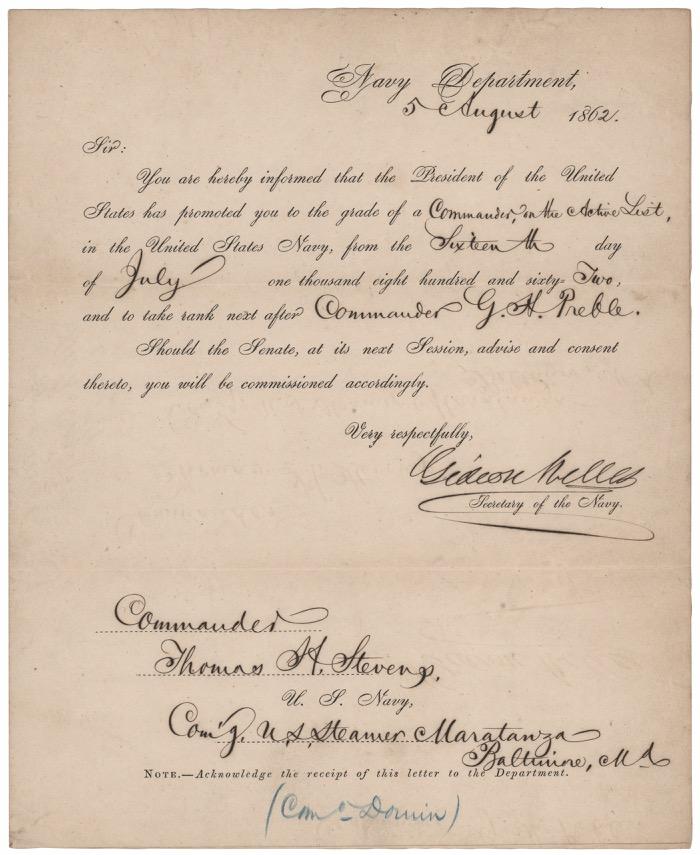 Navy Department,
5 August 1862.
Sir:
You are hereby informed that the President of the United
States has promoted you to the grade of a Commander, on the Active List,
in the United States Navy, from the Sixteenth day
of July one thousand eight hundred and sixty-Two,
and to take rank next after Commander G. H. Preble.
Should the Senate, at its next Session, advise and consent
thereto, you will be commissioned accordingly.
Very respectfully,
Gideon Welles
Secretary of the Navy.
Commander
Thomas H. Stevens,
U. S. Navy,
Com'g. U.S. Steamer Maratanza
Baltimore, Md
NOTE.—Acknowledge the receipt of this letter to the Department.